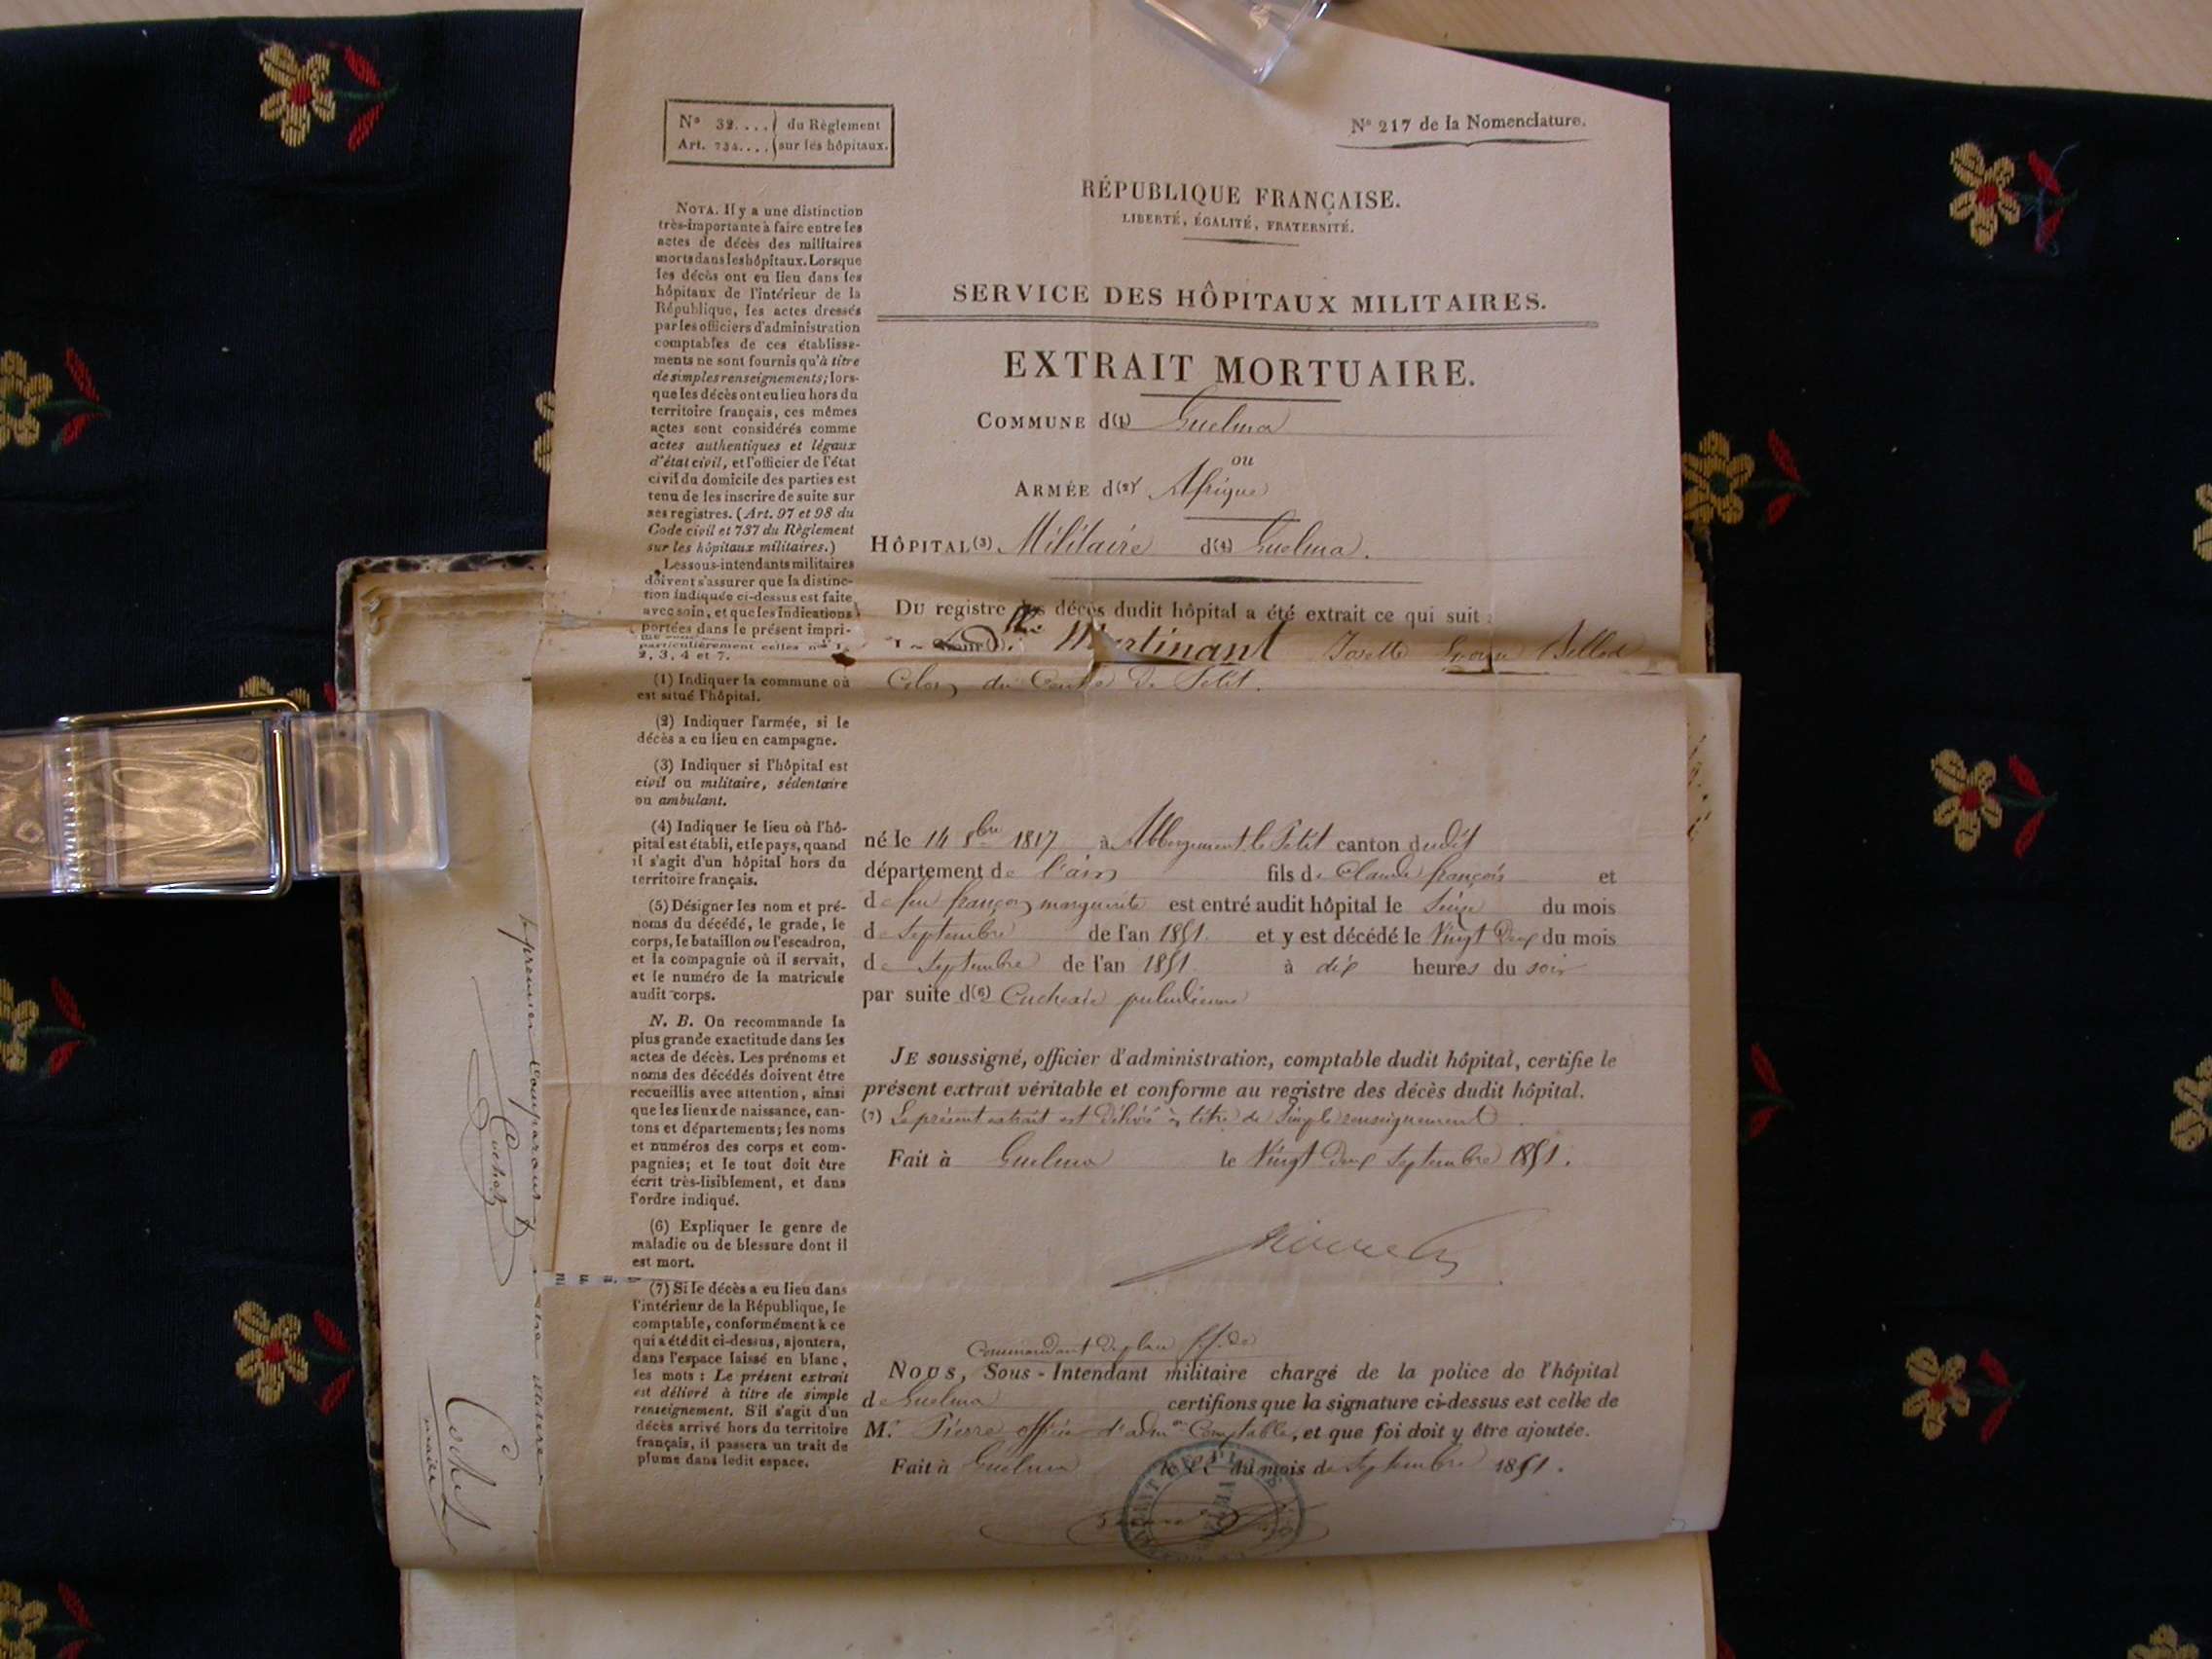 N° 32.... du Règlement
Art. 734.... sur les hôpitaux.
N° 217 de la Nomenclature.
RÉPUBLIQUE FRANÇAISE.
LIBERTÉ, ÉGALITÉ, FRATERNITÉ.
SERVICE DES HÔPITAUX MILITAIRES.
EXTRAIT MORTUAIRE.
COMMUNE d(1) Guelma
ou
ARMÉE d(2) Afrique
HÔPITAL(3) Militaire d(4) Guelma.
DU registre des décès dudit hôpital a été extrait ce qui suit :
Martinant Josette Bellod
Colon du Centre de Petit.
né le 14 8bre 1817 à Abbergement le Petit canton dudit
département de l'ain fils de Claude françois et
de feu françoy marguerite est entré audit hôpital le Seize du mois
de Septembre de l'an 1851 et y est décédé le Vingt Deux du mois
de Septembre de l'an 1851 à dix heures du soir
par suite d(6) Cachexie paludéenne
JE soussigné, officier d'administration, comptable dudit hôpital, certifie le
présent extrait véritable et conforme au registre des décès dudit hôpital.
(7) Le présent extrait est délivré à titre de simple renseignement
Fait à Guelma le Vingt Deux Septembre 1851.
Commandant de place ff. de
NOUS, Sous-Intendant militaire chargé de la police de l'hôpital
de Guelma certifions que la signature ci-dessus est celle de
M. Pierre offier d'admon Comptable, et que foi doit y être ajoutée.
Fait à Guelma le 22 du mois de Septembre 1851.
NOTA. Il y a une distinction
très-importante à faire entre les
actes de décès des militaires
morts dans les hôpitaux. Lorsque
les décès ont eu lieu dans les
hôpitaux de l'intérieur de la
République, les actes dressés
par les officiers d'administration
comptables de ces établisse-
ments ne sont fournis qu'à titre
de simples renseignements; lors-
que les décès ont eu lieu hors du
territoire français, ces mêmes
actes sont considérés comme
actes authentiques et légaux
d'état civil, et l'officier de l'état
civil du domicile des parties est
tenu de les inscrire de suite sur
ses registres. (Art. 97 et 98 du
Code civil et 737 du Règlement
sur les hôpitaux militaires.)
Les sous-intendants militaires
doivent s'assurer que la distinc-
tion indiquée ci-dessus est faite
avec soin, et que les indications
portées dans le présent impri-
particulièrement celles nos 1,
2, 3, 4 et 7.
(1) Indiquer la commune où
est situé l'hôpital.
(2) Indiquer l'armée, si le
décès a eu lieu en campagne.
(3) Indiquer si l'hôpital est
civil ou militaire, sédentaire
ou ambulant.
(4) Indiquer le lieu où l'hô-
pital est établi, et le pays, quand
il s'agit d'un hôpital hors du
territoire français.
(5) Désigner les nom et pré-
noms du décédé, le grade, le
corps, le bataillon ou l'escadron,
et la compagnie où il servait,
et le numéro de la matricule
audit corps.
N. B. On recommande la
plus grande exactitude dans les
actes de décès. Les prénoms et
noms des décédés doivent être
recueillis avec attention, ainsi
que les lieux de naissance, can-
tons et départements; les noms
et numéros des corps et com-
pagnies; et le tout doit être
écrit très-lisiblement, et dans
l'ordre indiqué.
(6) Expliquer le genre de
maladie ou de blessure dont il
est mort.
(7) Si le décès a eu lieu dans
l'intérieur de la République, le
comptable, conformément à ce
qui a été dit ci-dessus, ajoutera,
dans l'espace laissé en blanc,
les mots : Le présent extrait
est délivré à titre de simple
renseignement. S'il s'agit d'un
décès arrivé hors du territoire
français, il passera un trait de
plume dans ledit espace.
le premier comparant
maire